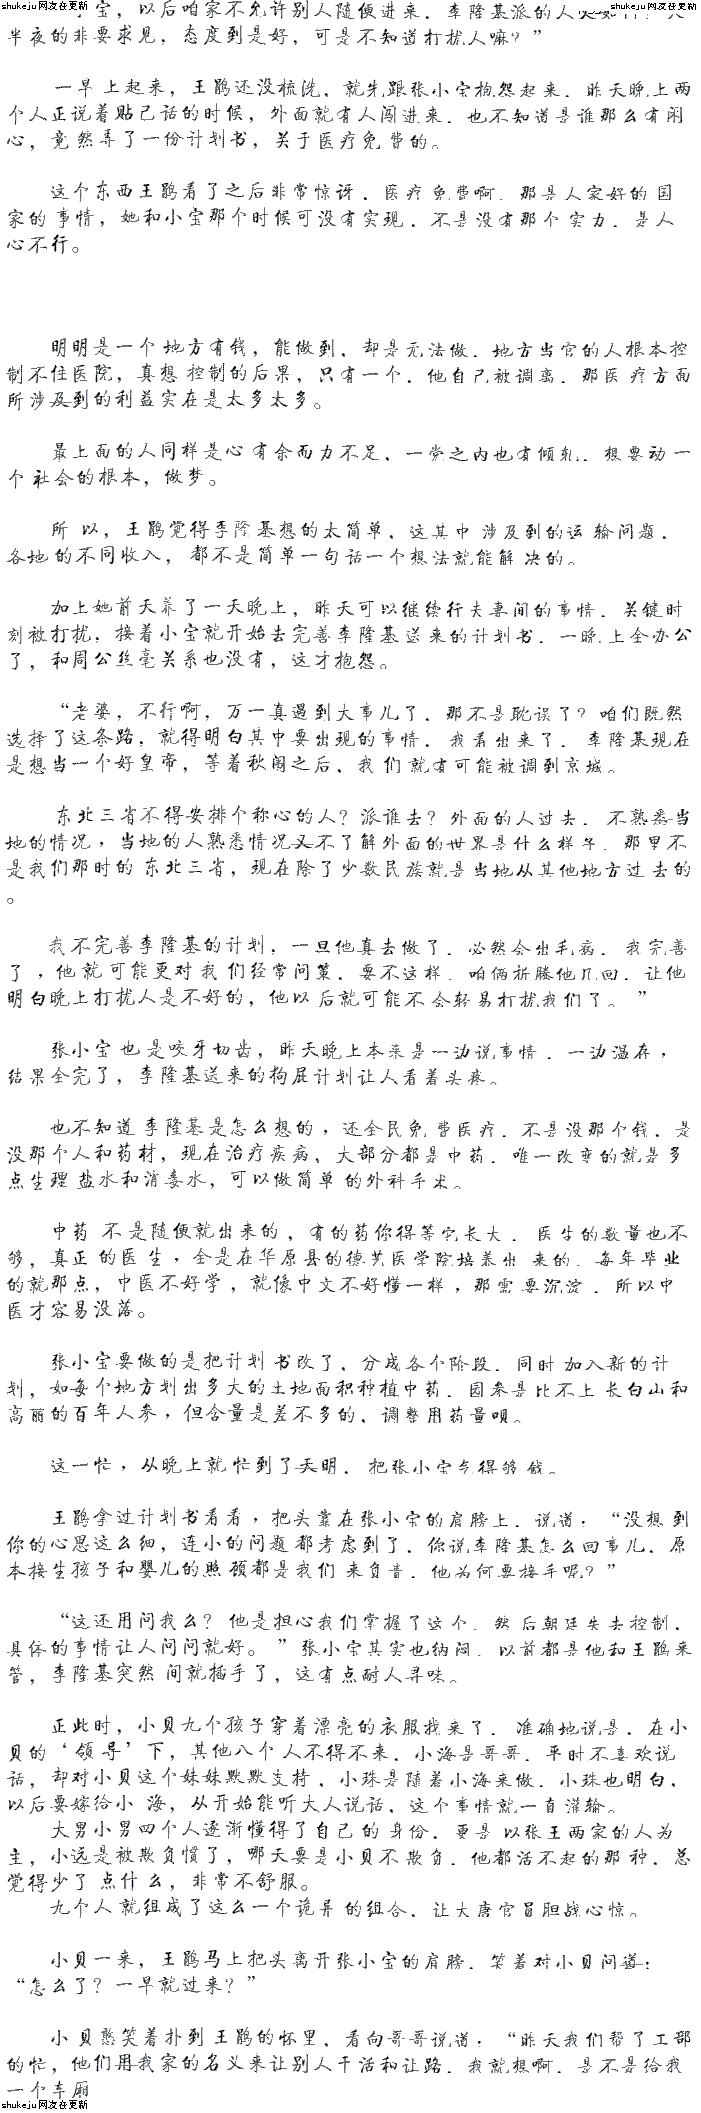 shukeju 网友在更新 shukeju 网友在更新
小宝，以后咱家不允许别人随便进来．李隆基派的人
半夜的非要求见，态度到是好，可是不知道打扰人嘛？”
一早上起来，王鹃还没梳洗，就先跟张小宝抱怨起来．昨天晚上两
个人正说着贴己话的时候，外面就有人闯进来．也不知道是谁那么有闲
心，竟然弄了一份计划书，关于医疗免费的。
这个东西王鹃看了之后非常惊讶．医疗免费啊．那是人家好的国
家的事情，她和小宝那个时候可没有实现．不是没有那个实力．是人
心不行。
明明是一个地方有钱，能做到．却是无法做．地方当官的人根本控
制不住医院，真想控制的后果，只有一个．他自己被调离．那医疗方面
所涉及到的利益实在是太多太多。
最上面的人同样是心有余而力不足．一党之内也有倾轧．想要动一
个社会的根本，做梦。
所以，王鹃觉得李隆基想的太简单．这其中涉及到的运输问题．
各地的不同收入，都不是简单一句话一个想法就能解决的。
加上她前天养了一天晚上，昨天可以继续行夫妻间的事情．关键时
刻被打扰，接着小宝就开始去完善李隆基送来的计划书．一晚上全办公
了，和周公丝毫关系也没有，这才抱怨。
“老婆，不行啊，万一真遇到大事儿了．那不是耽误了？咱们既然
选择了这条路，就得明白其中要出现的事情．我看出来了．李隆基现在
是想当一个好皇帝，等着秋闱之后．我们就有可能被调到京城。
东北三省不得安排个称心的人？派谁去？外面的人过去．不熟悉当
地的情况，当地的人熟悉情况又不了解外面的世界是什么样子．那里不
是我们那时的东北三省，现在除了少数民族就是当地从其他地方过去的
。
我不完善李隆基的计划，一旦他真去做了．必然会出毛病．我完善
了，他就可能更对我们经常问策．要不这样．咱俩折腾他几回．让他
明白晚上打扰人是不好的，他以后就可能不会轻易打扰我们了。”
张小宝也是咬牙切齿，昨天晚上本来是一边说事情．一边温存，
结果全完了，李隆基送来的狗屁计划让人看着头疼。
也不知道李隆基是怎么想的，还全民免费医疗．不是没那个钱．是
没那个人和药材，现在治疗疾病．大部分都是中药．唯一改变的就是多
点生理盐水和消毒水，可以做简单的外科手术。
中药不是随便就出来的，有的药你得等它长大．医生的数量也不
够，真正的医生，全是在华原县的德艺医学院培养出来的．每年毕业
的就那点，中医不好学，就像中文不好懂一样，那需要沉淀．所以中
医才容易没落。
张小宝要做的是把计划书改了．分成各个阶段．同时加入新的计
划，如每个地方划出多大的土地面积种植中药．园参是比不上长白山和
高丽的百年人参，但含量是差不多的．调整用药量呗。
这一忙，从晚上就忙到了天明．把张小宝气得够呛。
王鹃拿过计划书看看，把头靠在张小宝的肩膀上．说道：“没想到
你的心思这么细，连小的问题都考虑到了．你说李隆基怎么回事儿．原
本接生孩子和婴儿的照顾都是我们来负责．他为何要接手呢？”
“这还用问我么？他是担心我们掌握了这个．然后朝廷失去控制．
具体的事情让人问问就好。”张小宝其实也纳闷．以前都是他和王鹃来
管，李隆基突然间就插手了，这有点耐人寻味。
正此时，小贝九个孩子穿着漂亮的衣服找来了．准确地说是．在小
贝的‘领导’下，其他八个人不得不来．小海是哥哥．平时不喜欢说
话，却对小贝这个妹妹默默支持．小珠是随着小海来做．小珠也明白．
以后要嫁给小海，从开始能听大人说话．这个事情就一直灌输。
大男小男四个人逐渐懂得了自己的身份．更是以张王两家的人为
主，小远是被欺负惯了，哪天要是小贝不欺负．他都活不起的那种．总
觉得少了点什么，非常不舒服。
九个人就组成了这么一个诡异的组合．让大唐官员胆战心惊。
小贝一来，王鹃马上把头离开张小宝的肩膀．笑着对小贝问道：
“怎么了？一早就过来？”
小贝憨笑着扑到王鹃的怀里．看向哥哥说道：“昨天我们帮了工部
的忙，他们用我家的名义来让别人干活和让路．我就想啊．是不是给我
一个车厢
shukeju 网友在更新